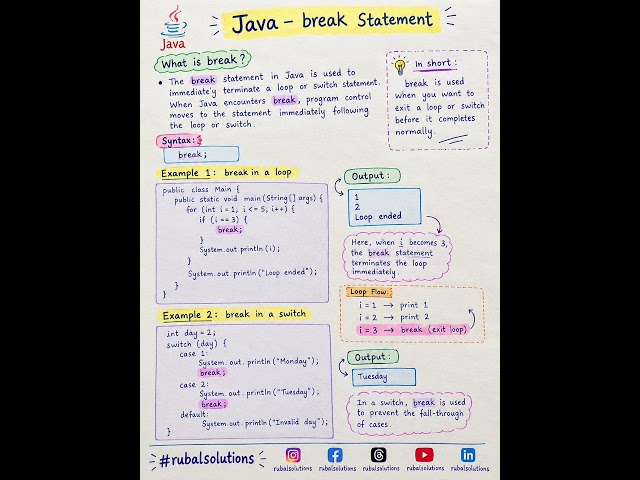 Java
Java – break Statement
What is break?
• The break statement in Java is used to
immediately terminate a loop or switch statement.
When Java encounters break, program control
moves to the statement immediately following
the loop or switch.
In short:
break is used
when you want to
exit a loop or switch
before it completes
normally.
Syntax:
break;
Example 1: break in a loop
public class Main {
public static void main(String[] args) {
for (int i = 1; i <= 5; i++) {
if (i == 3) {
break;
}
System.out.println(i);
}
System.out.println("Loop ended");
}
}
Output:
1
2
Loop ended
Here, when i becomes 3,
the break statement
terminates the loop
immediately.
Loop Flow:
i = 1 → print 1
i = 2 → print 2
i = 3 → break (exit loop)
Example 2: break in a switch
int day = 2;
switch (day) {
case 1:
System.out.println("Monday");
break;
case 2:
System.out.println("Tuesday");
break;
default:
System.out.println("Invalid day");
}
Output:
Tuesday
In a switch, break is used
to prevent the fall-through
of cases.
#rubalsolutions
rubalsolutions rubalsolutions rubalsolutions rubalsolutions rubalsolutions